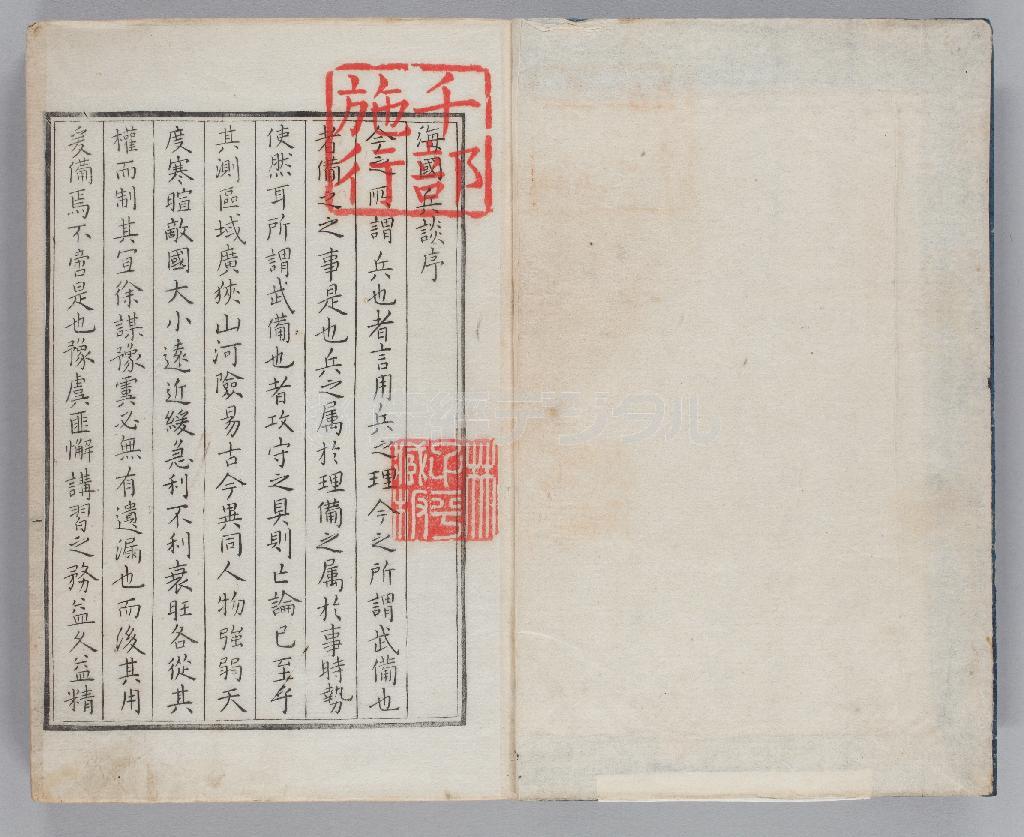 海國兵談序
今之所謂兵也者言用兵之理今之所謂武備也
者備之之事是也兵之属於理備之属於事時勢
使然耳所謂武備也者攻守之具則亡論已至乎
其測區域廣狹山河險易古今異同人物強弱天
度寒暄敵國大小遠近緩急利不利衰旺各從其
權而制其宜徐謀豫霣必無有遺漏也而後其用
爰備焉不啻是也豫虞匪懈講習之務益久益精
千部
施行
デジタル